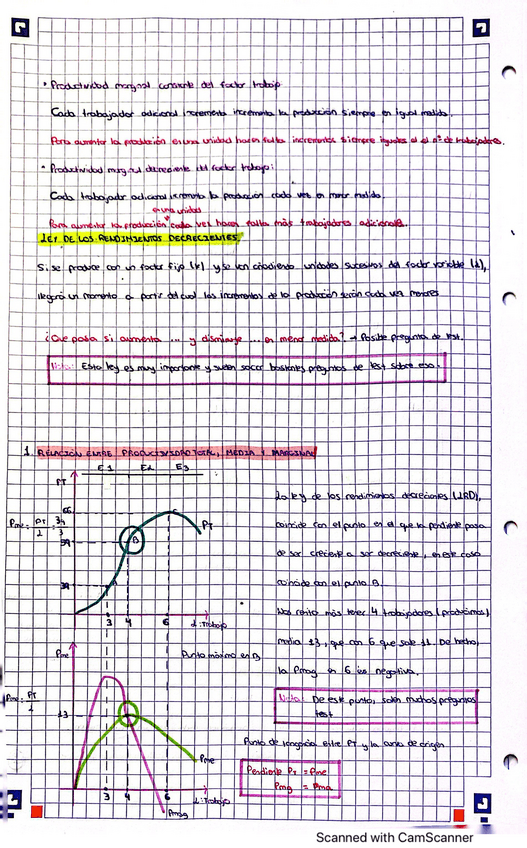 • Productividad marginal constante del factor trabajo
Cada trabajador adicional incremento incrementa la producción siempre en igual medida.
Para aumentar la producción en una unidad hacen falta incrementos siempre iguales el nº de trabajadores.
• Productividad marginal decreciente del factor trabajo:
Cada trabajador adicional incrementa la producción cada vez en menor medida.
en una unidad
Para aumentar la producción cada vez hacen falta más trabajadores adicionales.
LEY DE LOS RENDIMIENTOS DECRECIENTES
Si se produce con un factor fijo (K) y se van añadiendo unidades sucesivas del factor variable (L),
llegará un momento a partir del cual los incrementos de la producción serán cada vez menores
¿Que pasa si aumenta ... y disminuye ... en menor medida? → Posible pregunta de test.
Nota: Esta ley es muy importante y suelen sacar bastantes preguntas de test sobre eso.
1. RELACIÓN ENTRE PRODUCTIVIDAD TOTAL, MEDIA Y MARGINAL
E1 E2 E3
PT
66
PT
B
A
3 4 6 L: Trabajo
La ley de los rendimientos decrecientes (LRD),
coincide con el punto en el que la pendiente pasa
de ser creciente a ser decreciente, en este caso
coincide con el punto B.
Nos renta más tener 4 trabajadores (producimos)
media 13, que con 6 que sale 11. De hecho,
la Pmag en 6 es negativa.
Pme
Punto máximo en B
Pme = PT
L
13
Pme
3 4 6 L: Trabajo
Pmag
Nota: De este punto, salen muchas preguntas
test
Punto de tangencia entre PT y la curva de origen
Pendiente PT = Pme
Pmg = Pma
Scanned with CamScanner